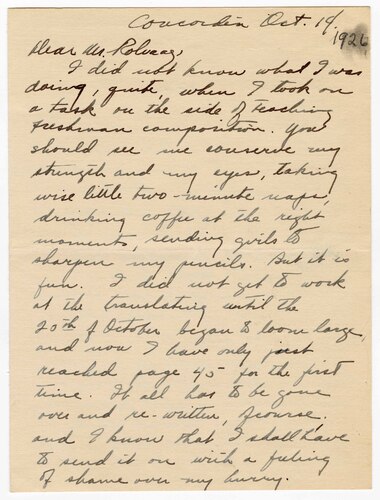 Concordia Oct. 14
1926
Dear Mr. Rolvaag,
I did not know what I was
doing, quite, when I took on
a task on the side of teaching
freshman composition. You
should see me conserve my
strength and my eyes, taking
wise little two-minute naps,
drinking coffee at the right
moments, sending girls to
sharpen my pencils. But it is
fun. I did not get to work
at the translating until the
20th of October began to loom large,
and now I have only just
reached page 45 for the first
time. It all has to be gone
over and re-written, of course,
and I know that I shall have
to send it on with a feeling
of shame over my hurry.